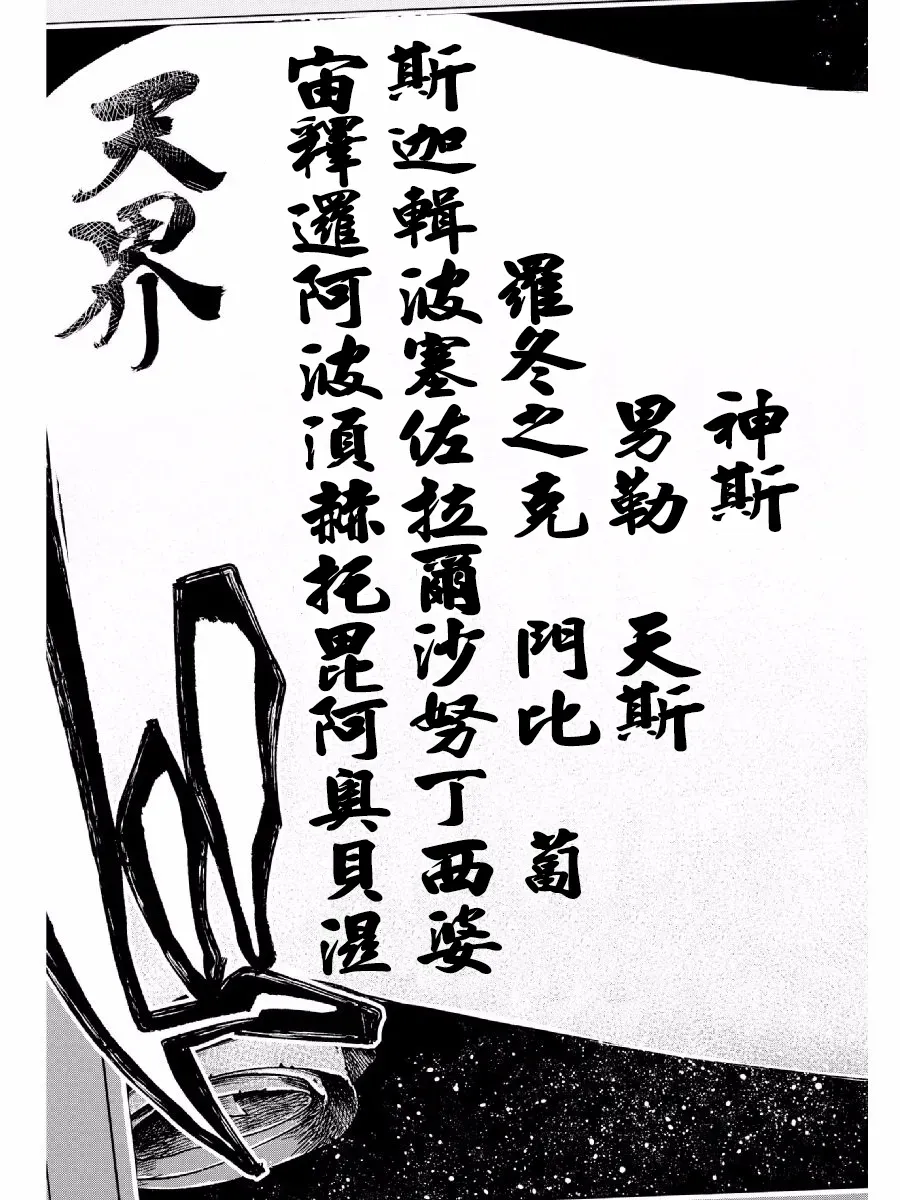 天界
宙斯
釋迦
邏輯
阿波羅
波塞冬
須佐之男神
赫拉克勒斯
托爾
毘沙門天
阿努比斯
奧丁
貝西蔔
濕婆